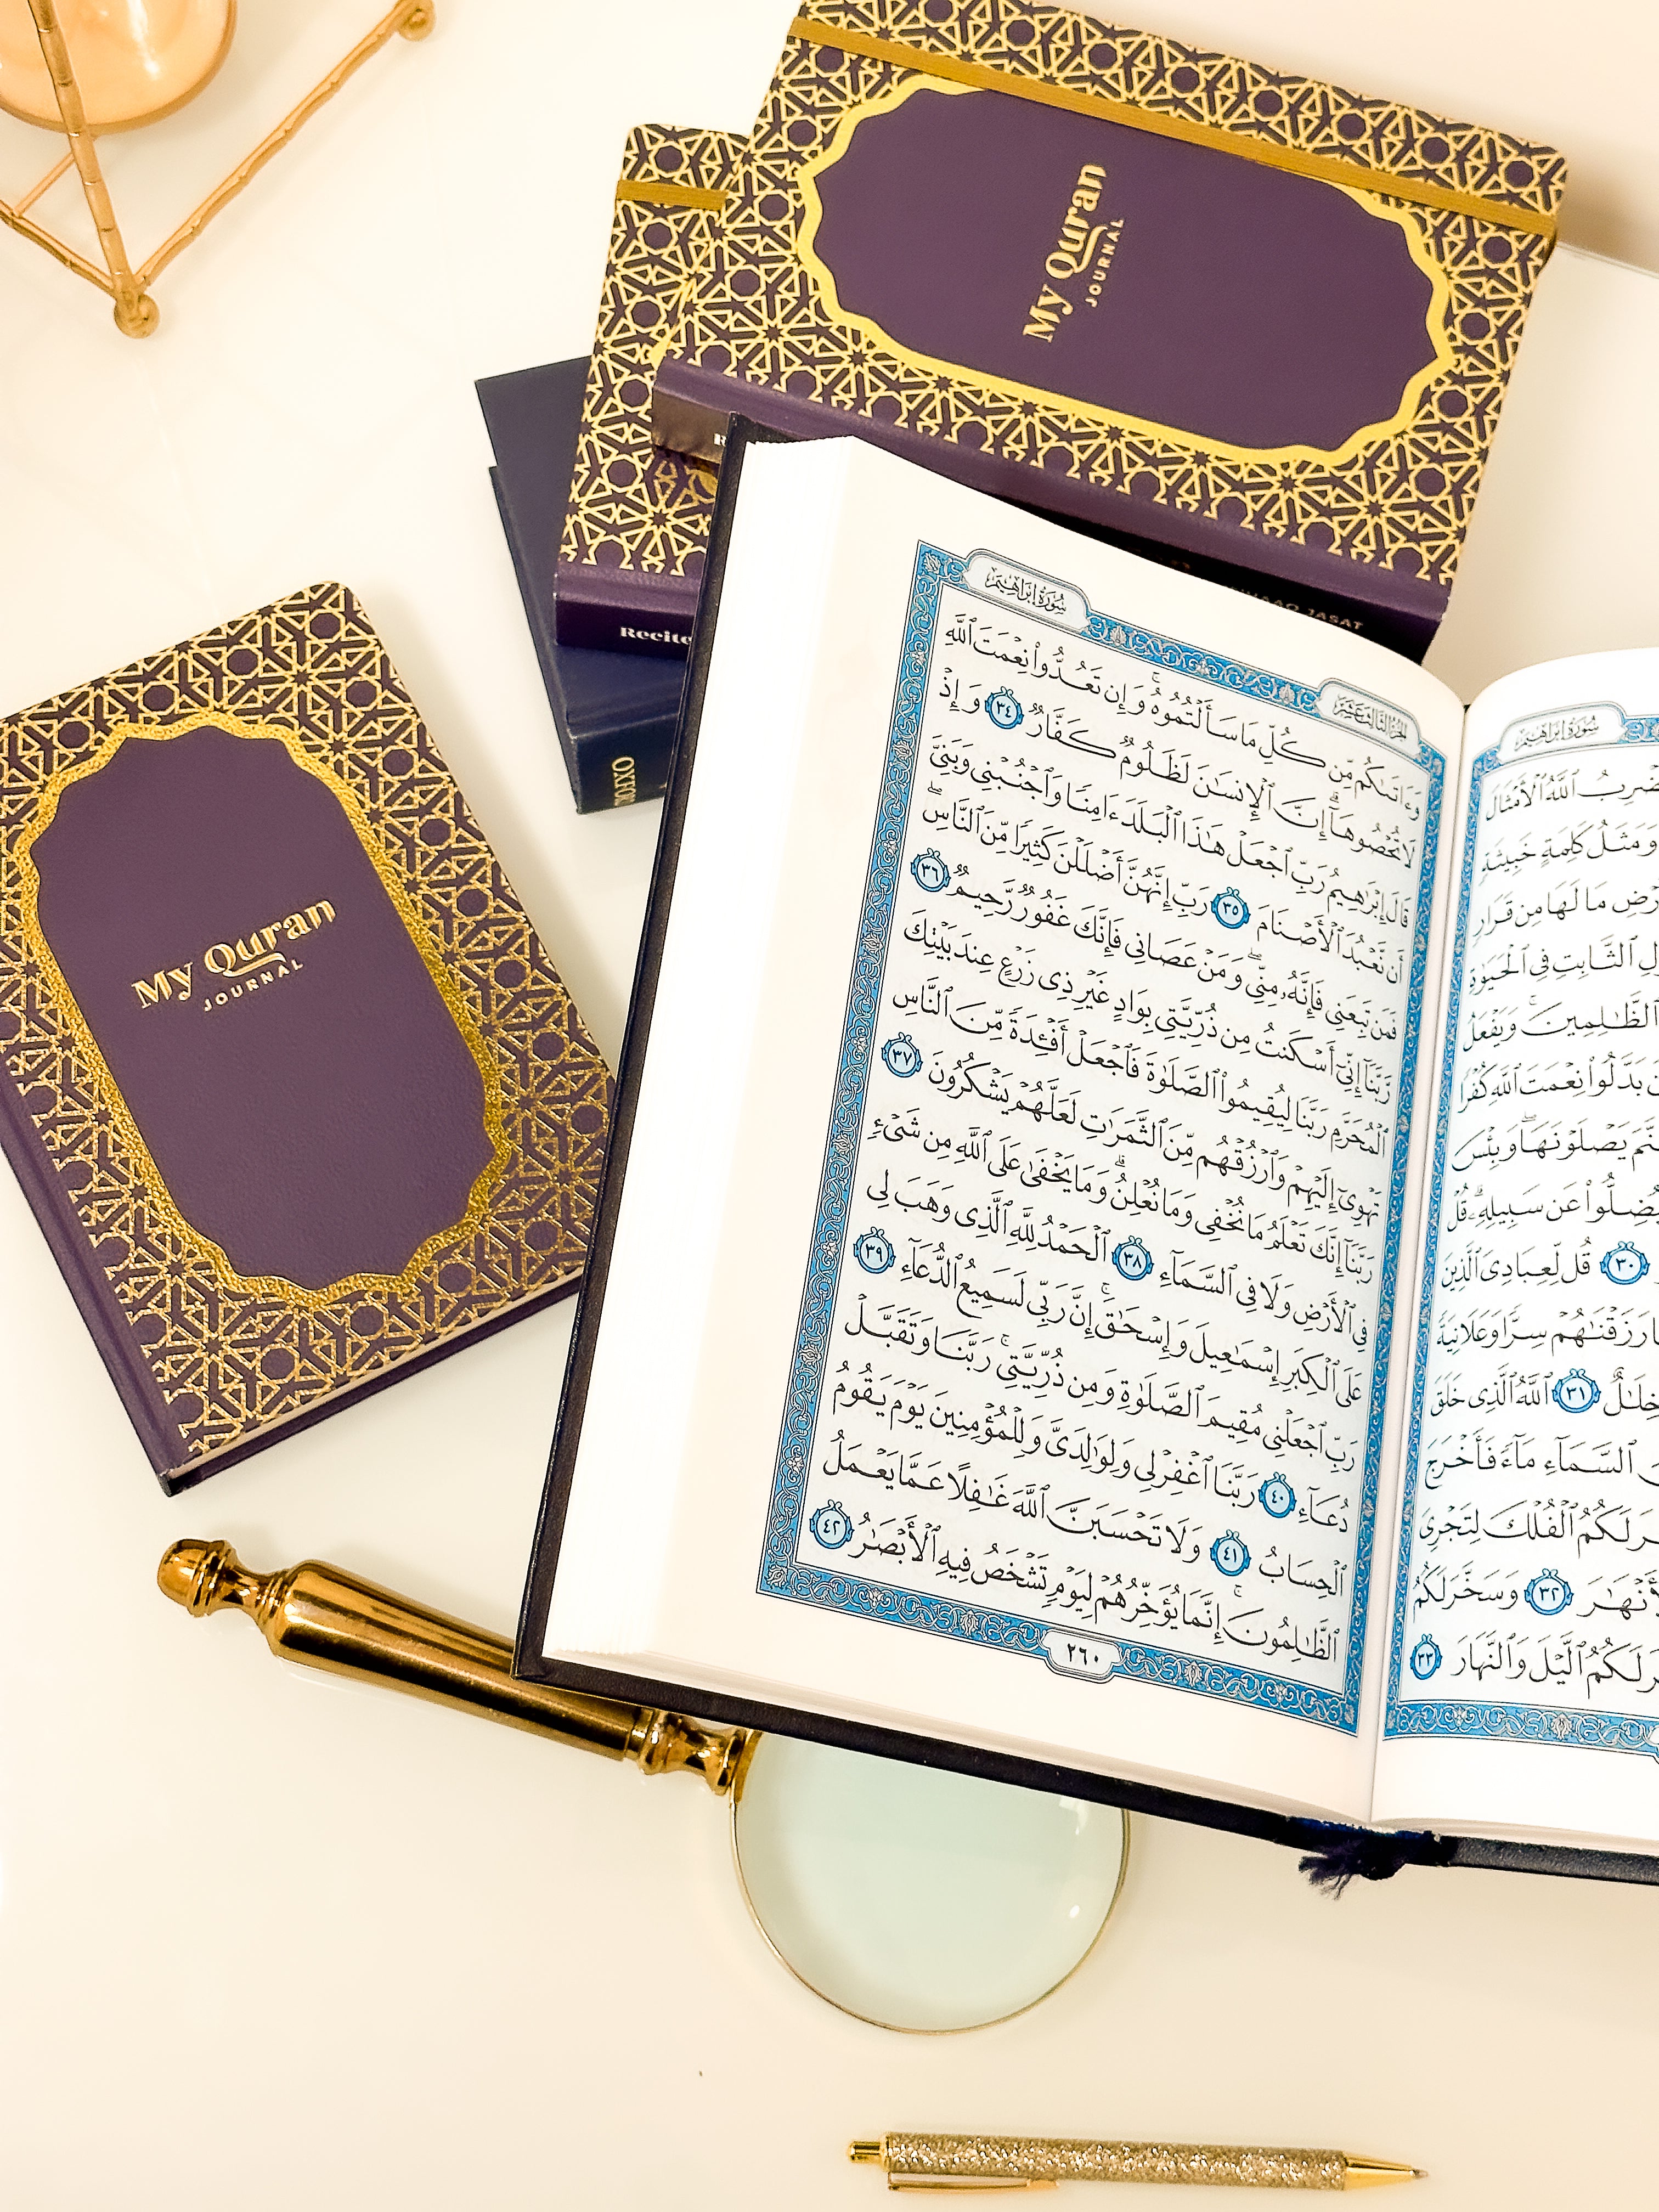 My Quran
JOURNAL
JASAT
Recite
OXFO
My Quran
JOURNAL
سُورَةُ إِبْرَاهِيمَ
الجُزْءُ الثَّالِثَ عَشَرَ
وَءَاتَىٰكُم مِّن كُلِّ مَا سَأَلْتُمُوهُ ۚ وَإِن تَعُدُّوا۟ نِعْمَتَ ٱللَّهِ
لَا تُحْصُوهَآ ۗ إِنَّ ٱلْإِنسَٰنَ لَظَلُومٌ كَفَّارٌ ٣٤ وَإِذْ
قَالَ إِبْرَٰهِيمُ رَبِّ ٱجْعَلْ هَٰذَا ٱلْبَلَدَ ءَامِنًا وَٱجْنُبْنِى وَبَنِىَّ
أَن نَّعْبُدَ ٱلْأَصْنَامَ ٣٥ رَبِّ إِنَّهُنَّ أَضْلَلْنَ كَثِيرًا مِّنَ ٱلنَّاسِ ۖ
فَمَن تَبِعَنِى فَإِنَّهُۥ مِنِّى ۖ وَمَنْ عَصَانِى فَإِنَّكَ غَفُورٌ رَّحِيمٌ ٣٦
رَّبَّنَآ إِنِّىٓ أَسْكَنتُ مِن ذُرِّيَّتِى بِوَادٍ غَيْرِ ذِى زَرْعٍ عِندَ بَيْتِكَ
ٱلْمُحَرَّمِ رَبَّنَا لِيُقِيمُوا۟ ٱلصَّلَوٰةَ فَٱجْعَلْ أَفْـِٔدَةً مِّنَ ٱلنَّاسِ
تَهْوِىٓ إِلَيْهِمْ وَٱرْزُقْهُم مِّنَ ٱلثَّمَرَٰتِ لَعَلَّهُمْ يَشْكُرُونَ ٣٧
رَبَّنَآ إِنَّكَ تَعْلَمُ مَا نُخْفِى وَمَا نُعْلِنُ ۗ وَمَا يَخْفَىٰ عَلَى ٱللَّهِ مِن شَىْءٍ
فِى ٱلْأَرْضِ وَلَا فِى ٱلسَّمَآءِ ٣٨ ٱلْحَمْدُ لِلَّهِ ٱلَّذِى وَهَبَ لِى
عَلَى ٱلْكِبَرِ إِسْمَٰعِيلَ وَإِسْحَٰقَ ۚ إِنَّ رَبِّى لَسَمِيعُ ٱلدُّعَآءِ ٣٩
رَبِّ ٱجْعَلْنِى مُقِيمَ ٱلصَّلَوٰةِ وَمِن ذُرِّيَّتِى ۚ رَبَّنَا وَتَقَبَّلْ
دُعَآءِ ٤٠ رَبَّنَا ٱغْفِرْ لِى وَلِوَٰلِدَىَّ وَلِلْمُؤْمِنِينَ يَوْمَ يَقُومُ
ٱلْحِسَابُ ٤١ وَلَا تَحْسَبَنَّ ٱللَّهَ غَٰفِلًا عَمَّا يَعْمَلُ
ٱلظَّٰلِمُونَ ۚ إِنَّمَا يُؤَخِّرُهُمْ لِيَوْمٍ تَشْخَصُ فِيهِ ٱلْأَبْصَٰرُ ٤٢
٢٦٠
سُورَةُ إِبْرَاهِيمَ
ٱللَّهُ ٱلْأَمْثَالَ
وَمَثَلُ كَلِمَةٍ خَبِيثَةٍ
مَا لَهَا مِن قَرَارٍ
ٱلثَّابِتِ فِى ٱلْحَيَوٰةِ
ٱلظَّٰلِمِينَ ۚ وَيَفْعَلُ
بَدَّلُوا۟ نِعْمَتَ ٱللَّهِ كُفْرًا
يَصْلَوْنَهَا ۖ وَبِئْسَ
عَن سَبِيلِهِۦ ۗ قُلْ
٣٠ قُل لِّعِبَادِىَ ٱلَّذِينَ
رَزَقْنَٰهُمْ سِرًّا وَعَلَانِيَةً
خِلَٰلٌ ٣١ ٱللَّهُ ٱلَّذِى خَلَقَ
ٱلسَّمَآءِ مَآءً فَأَخْرَجَ
لَكُمُ ٱلْفُلْكَ لِتَجْرِىَ
٣٢ وَسَخَّرَ لَكُمُ
لَكُمُ ٱلَّيْلَ وَٱلنَّهَارَ ٣٣